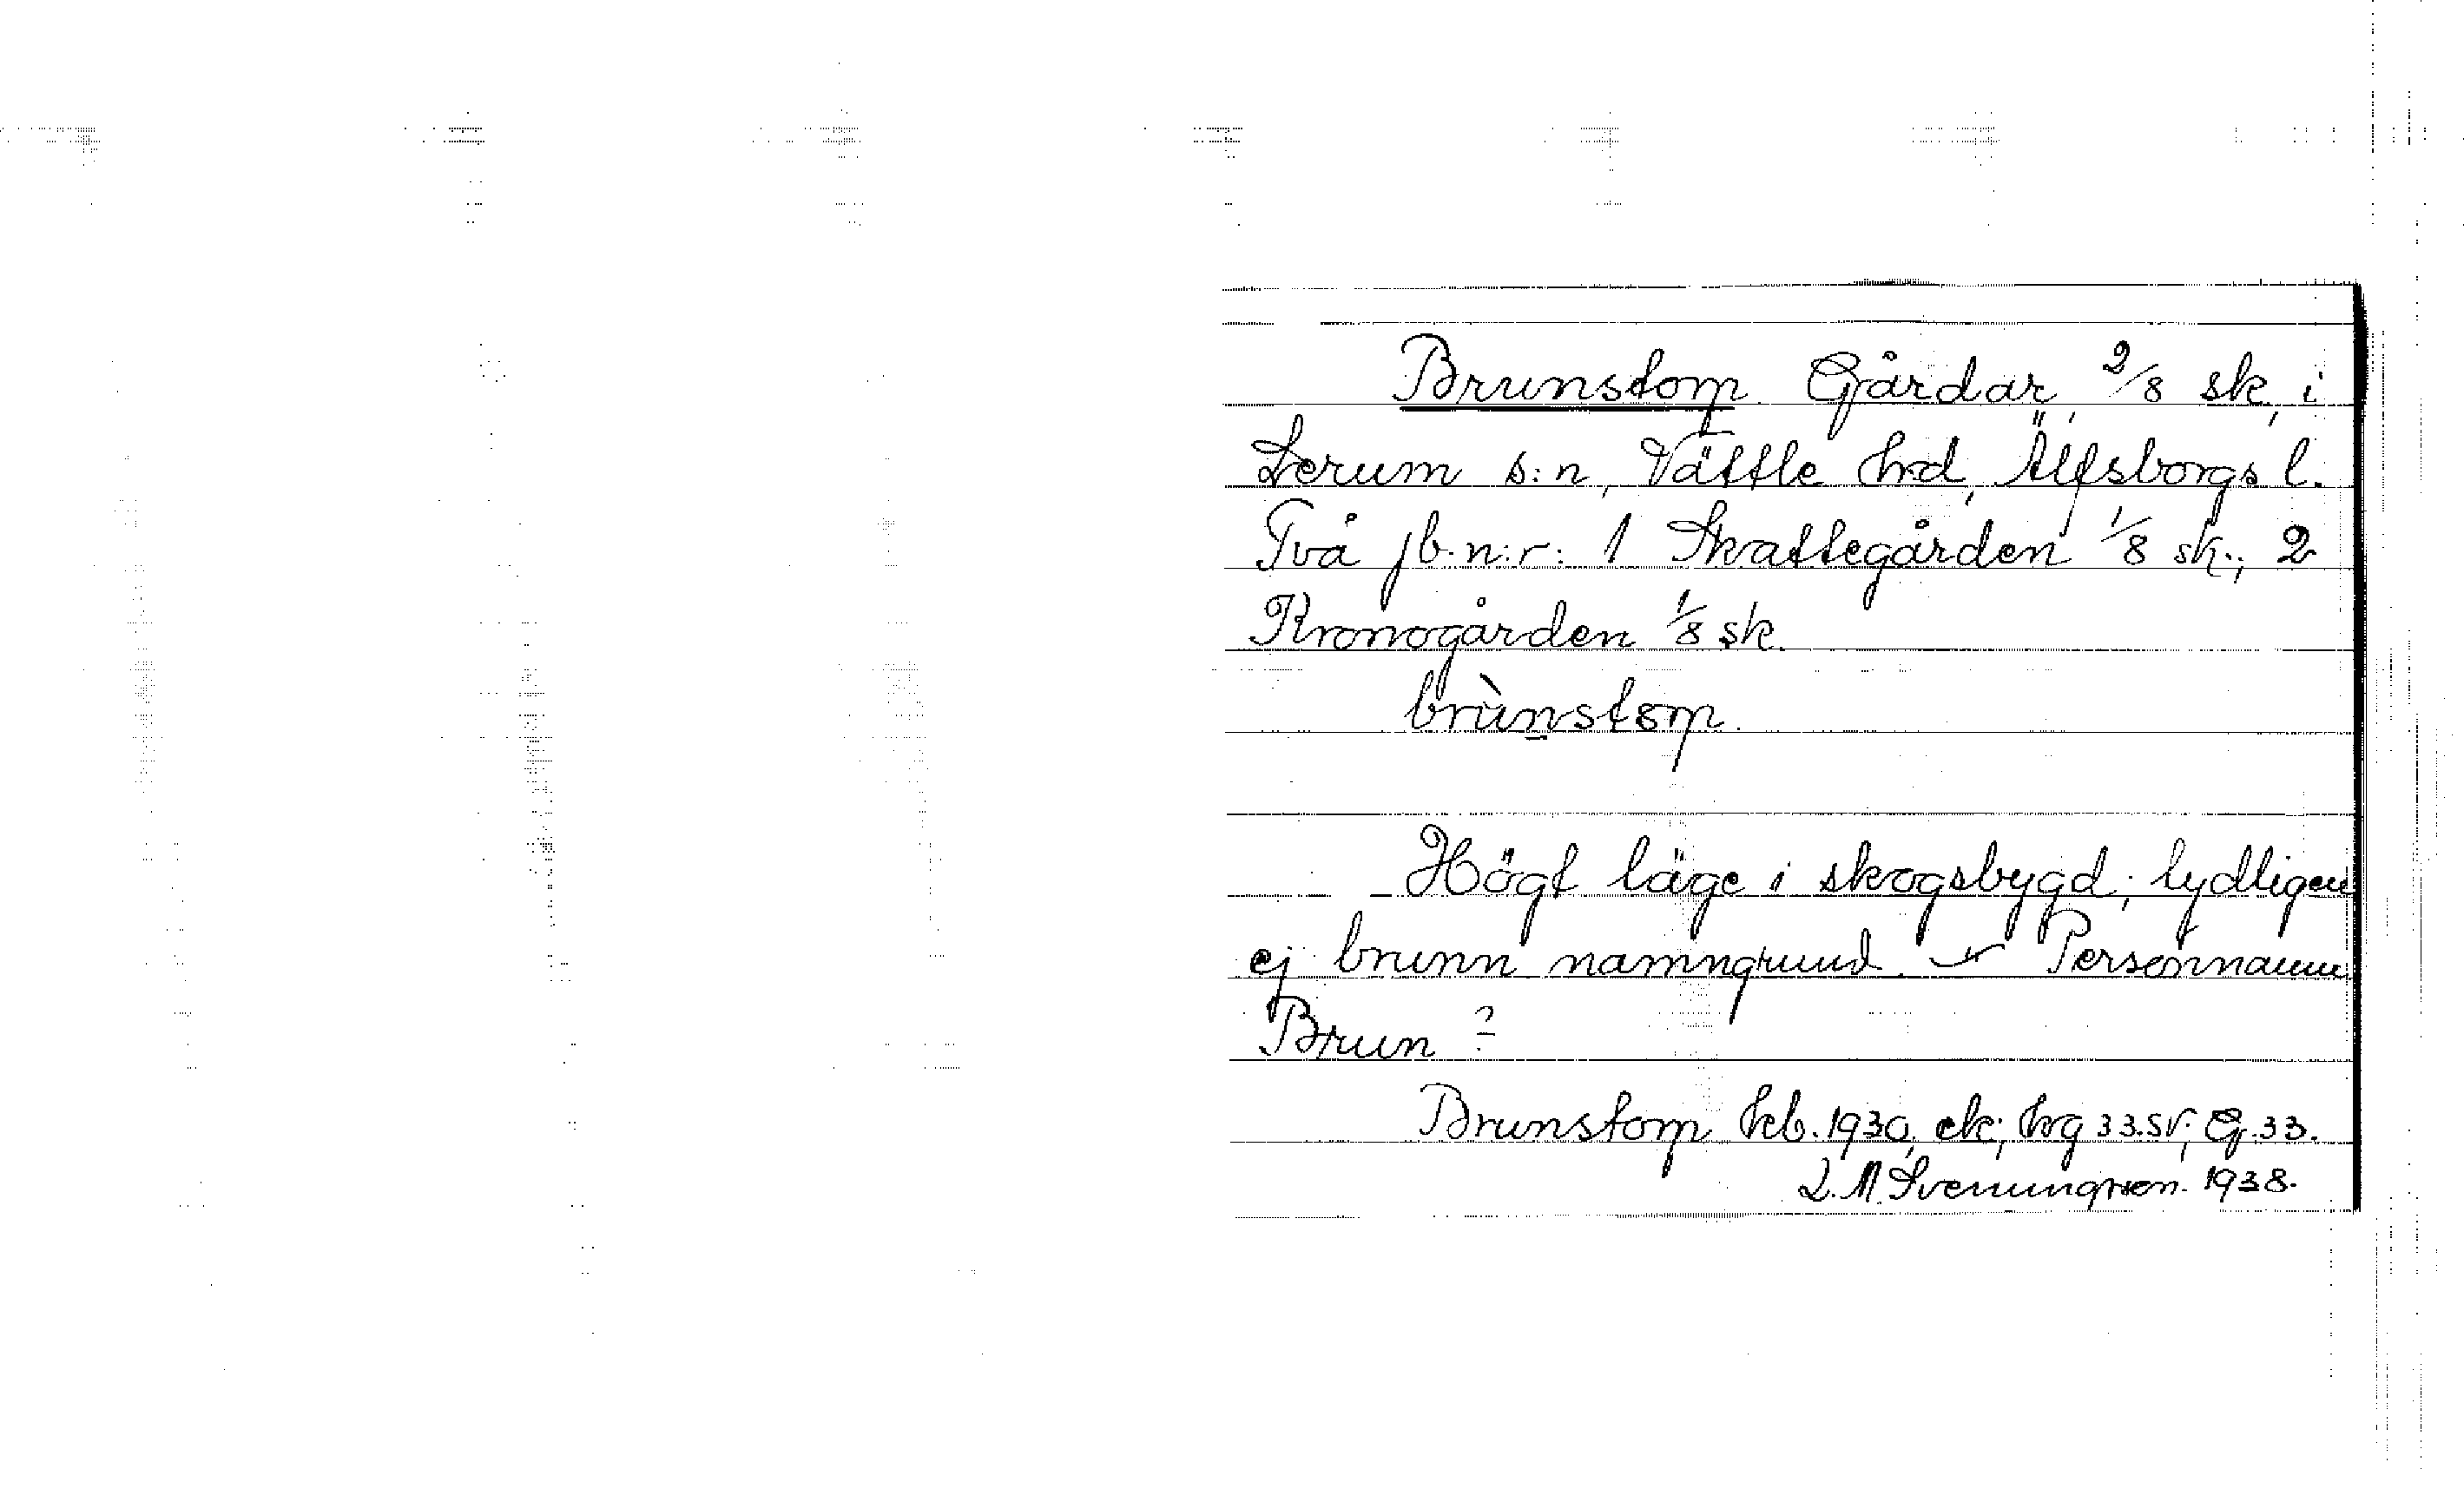 Brunstorp. Gårdar, 2/8 sk, i
Lerum s:n, Vättle hrd, Älfsborgs l.
Två jb.n:r: 1 Skattegården 1/8 sk.; 2
Kronogården 1/8 sk.
brùnstɔrp.
Högt läge i skogsbygd; tydligen
ej brunn namngrund. Personnamn
Brun?
Brunstorp hb. 1930, ek; hrg 33.SV; Gj. 33.
Svenungsson. 1938.